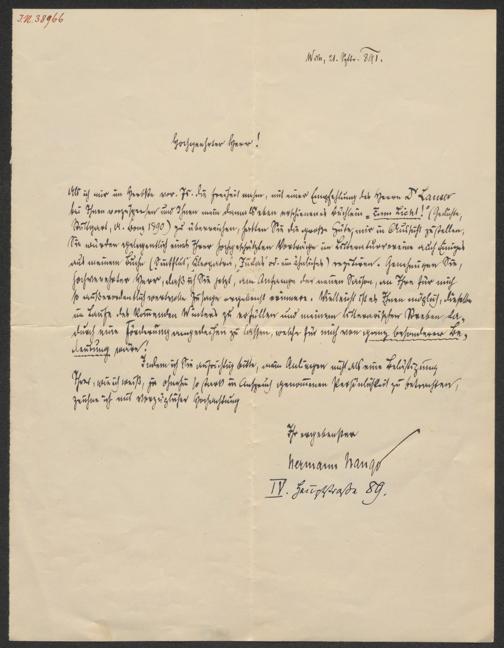 I.N. 38966
Wien, 21. Septbr. 891.
Hochgeehrter Herr!
Als ich mir im Herbste vor. Js. die Freiheit nahm, mit einer Empfehlung des Herrn Dr
bei Ihnen vorzusprechen und Ihnen mein damals eben erschienenes Büchlein „Zum Licht!“ (Gedichte,
Stuttgart, 1890) zu überreichen, hatten Sie die große Güte, mir in Aussicht zu stellen,
Sie würden gelegentlich eines Ihrer hochgeschätzten Vorträge im auch Einiges
aus meinem Buche (Kleopatra, Judas od. ein Ähnliches) rezitiren. Genehmigen Sie,
hochverehrter Herr, daß ich Sie jetzt, am Anfange der neuen Saison, an Ihre für mich
so außerordentlich wertvolle Zusage ergebenst erinnere. Vielleicht ist es Ihnen möglich, dieselbe
im Laufe des kommenden Winters zu erfüllen und meinem literarischen Streben da-
durch eine Förderung angedeihen zu lassen, welche für mich von ganz besonderer Be-
deutung wäre!
Indem ich Sie aufrichtig bitte, mein Anliegen nicht als eine Belästigung
Ihrer, wie ich weiß, ja ohnehin so stark in Anspruch genommenen Persönlichkeit zu betrachten,
zeichne ich mit vorzüglicher Hochachtung
Ihr ergebenster
Hermann Hango
IV. Hauptstraße 89.